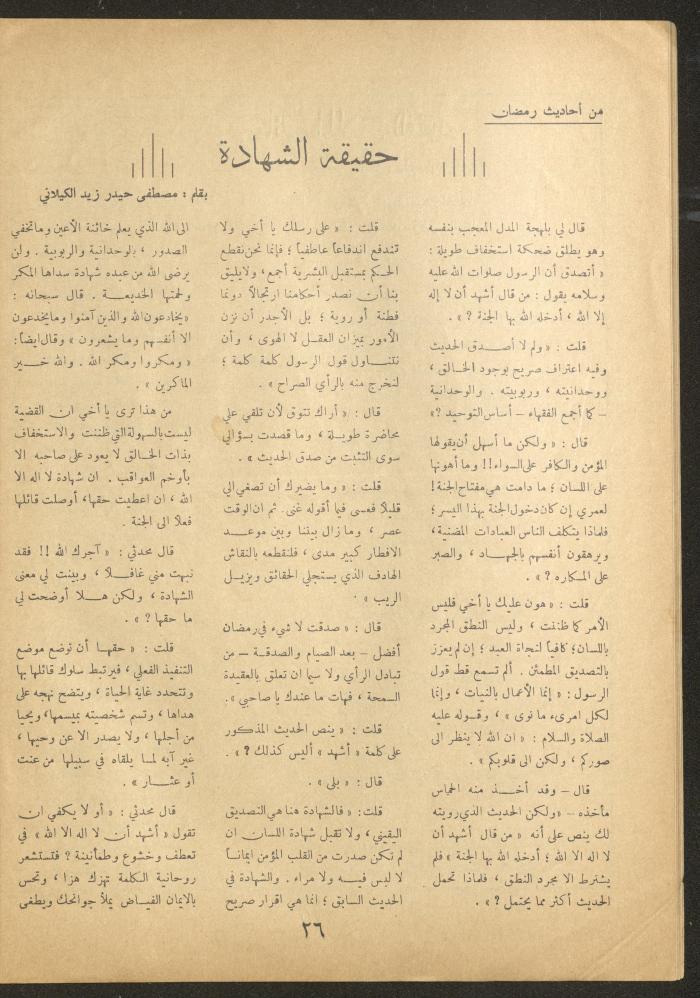 من أحاديث رمضان
حقيقة الشهادة
بقلم : مصطفى حيدر زيد الكيلاني
قال لي بلهجة المدل المعجب بنفسه
وهو يطلق ضحكة استخفاف طويلة :
« أتصدق أن الرسول صلوات الله عليه
وسلامه يقول : من قال أشهد أن لا إله
إلا الله ، أدخله الله بها الجنة ؟ » .
قلت : « ولم لا أصدق الحديث
وفيه اعتراف صريح بوجود الخالق ،
ووحدانيته ، وربوبيته . والوحدانية
– كما أجمع الفقهاء – أساس التوحيد ؟»
قال : « ولكن ما أسهل أن يقولها
المؤمن والكافر على السواء!! وما أهونها
على اللسان ؛ ما دامت هي مفتاح الجنة!
لعمري إن كان دخول الجنة بهذا اليسر ؛
فلماذا يتكلف الناس العبادات المضنية،
ويرهقون أنفسهم بالجهاد ، والصبر
على المكاره ؟ » .
قلت : « هون عليك يا أخي فليس
الأمر كما ظننت ، وليس النطق المجرد
باللسان؛ كافياً لنجاة العبد ؛ إن لم يعزز
بالتصديق المطمئن . ألم تسمع قط قول
الرسول : « إنما الأعمال بالنيات ، وإنما
لكل امرىء ما نوى » ، وقوله عليه
الصلاة والسلام : « ان الله لا ينظر الى
صوركم ، ولكن الى قلوبكم » .
قال – وقد أخذ منه الحماس
مأخذه – «ولكن الحديث الذي رويته
لك ينص على أنه « من قال أشهد أن
لا اله الا الله ؛ أدخله الله بها الجنة » فلم
يشترط الا مجرد النطق ، فلماذا تحمل
الحديث أكثر مما يحتمل ؟ » .
قلت : « على رسلك يا أخي ولا
تندفع اندفاعاً عاطفياً ؛ فإنما نحن نقطع
الحكم بمستقبل البشرية أجمع، ولا يليق
بنا أن نصدر أحكامنا ارتجالاً دونما
فطنة أو روية ؛ بل الأجدر أن نزن
الأمور بميزان العقل لا الهوى ، وأن
نتناول قول الرسول كلمة كلمة ؛
لنخرج منه بالرأي الصراح » .
قال : « أراك تتوق لأن تلقي علي
محاضرة طويلة ، وما قصدت بسؤالي
سوى التثبت من صدق الحديث » .
قلت : « وما يضيرك أن تصغي الي
قليلاً فعسى فيما أقوله غنى. ثم ان الوقت
عصر ، وما زال بيننا وبين موعد
الافطار كبير مدى ، فلنقطعه بالنقاش
الهادف الذي يستجلي الحقائق ويزيل
الريب » .
قال : « صدقت لا شيء في رمضان
أفضل – بعد الصيام والصدقة – من
تبادل الرأي ولا سيما ان تعلق بالعقيدة
السمحة ، فهات ما عندك يا صاحبي ».
قلت : « ينص الحديث المذكور
على كلمة « أشهد » أليس كذلك ؟ » .
قال : « بلى » .
قلت : « فالشهادة هنا هي التصديق
اليقيني ، ولا تقبل شهادة اللسان ان
لم تكن صدرت من القلب المؤمن ايماناً
لا لبس فيه ولا مراء . والشهادة في
الحديث السابق ؛ انما هي اقرار صريح
الى الله الذي يعلم خائنة الأعين وما تخفي
الصدور ، بالوحدانية والربوبية . ولن
يرضى الله من عبده شهادة سداها المكر
ولحمتها الخديعة . قال سبحانه :
«يخادعون الله والذين آمنوا وما يخدعون
الا أنفسهم وما يشعرون » وقال ايضاً:
« ومكروا ومكر الله . والله خير
الماكرين » .
من هذا ترى يا أخي ان القضية
ليست بالسهولة التي ظننت والاستخفاف
بذات الخالق لا يعود على صاحبه الا
بأوخم العواقب . ان شهادة لا اله الا
الله ، ان اعطيت حقها، أوصلت قائلها
فعلاً الى الجنة .
قال محدثي : « آجرك الله !! فقد
نبهت مني غافلاً ، وبينت لي معنى
الشهادة ، ولكن هلا أوضحت لي
ما حقها ؟ » .
قلت : « حقها أن توضع موضع
التنفيذ الفعلي ، فيرتبط سلوك قائلها بها
وتتحدد غاية الحياة ، ويتضح نهجه على
هداها ، وتسم شخصيته بميسمها، ويحيا
من أجلها ، ولا يصدر الا عن وحيها ،
غير آبه لما يلقاه في سبيلها من عنت
أو عثار » .
قال محدثي : « أو لا يكفي ان
تقول « أشهد أن لا اله الا الله » في
تعطف وخشوع وطمأنينة ؟ فتستشعر
روحانية الكلمة تهزك هزا ، وتحس
بالايمان الفياض يملأ جوانحك ويطغى
٢٦